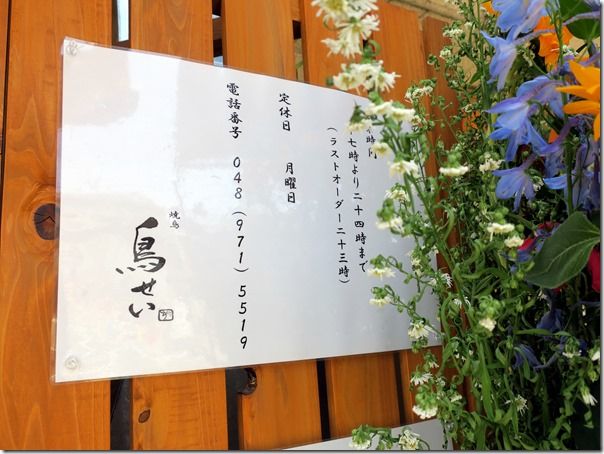 時間
七時より二十四時まで
(ラストオーダー二十三時)
定休日 月曜日
電話番号 048(971)5519
焼鳥
鳥せい